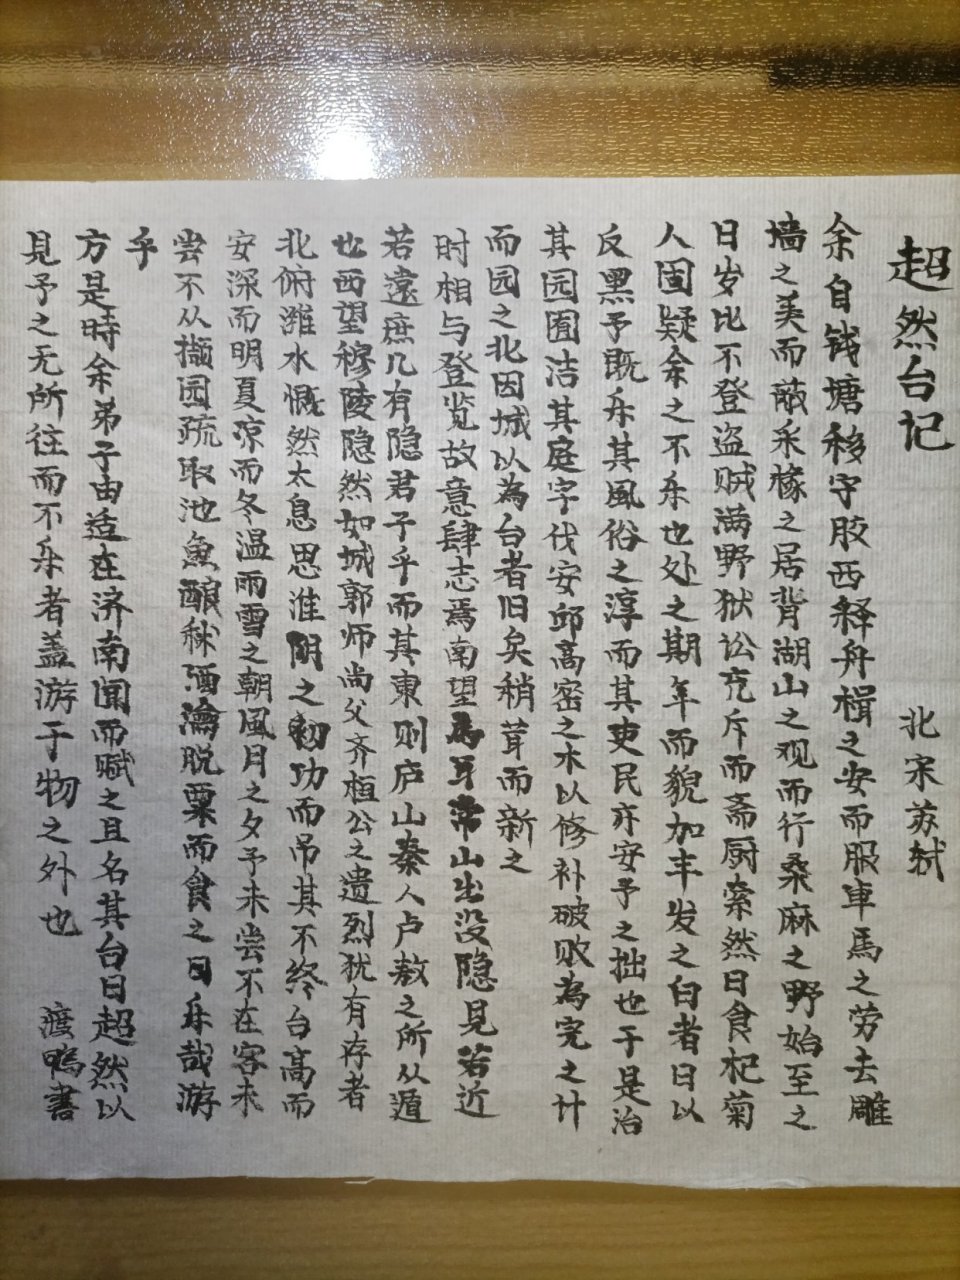 超然台记
北宋苏轼
余自钱塘移守胶西释舟楫之安而服車馬之劳去雕
墙之美而蔽采椽之居背湖山之观而行桑麻之野始至之
日岁比不登盗贼满野狱讼充斥而斋厨索然日食杞菊
人固疑余之不乐也处之期年而貌加丰发之白者日以
反黑予既乐其風俗之淳而其吏民亦安予之拙也于是治
其园囿洁其庭宇伐安邱高密之木以修补破败為完之计
而园之北因城以為台者旧矣稍葺而新之
时相与登览故意肆志焉南望馬耳常山出没隐見若近
若遠庶几有隐君子乎而其東则庐山秦人卢敖之所从遁
也西望穆陵隐然如城郭师尚父齐桓公之遗烈犹有存者
北俯潍水慨然太息思淮阴之功而吊其不终台高而
安深而明夏凉而冬温雨雪之朝風月之夕予未尝不在客未
尝不从撷园疏取池魚酿秫酒瀹脱粟而食之曰乐哉游
乎
方是時余弟子由适在济南闻而赋之且名其台曰超然以
見予之无所往而不乐者盖游于物之外也
渡鸭書